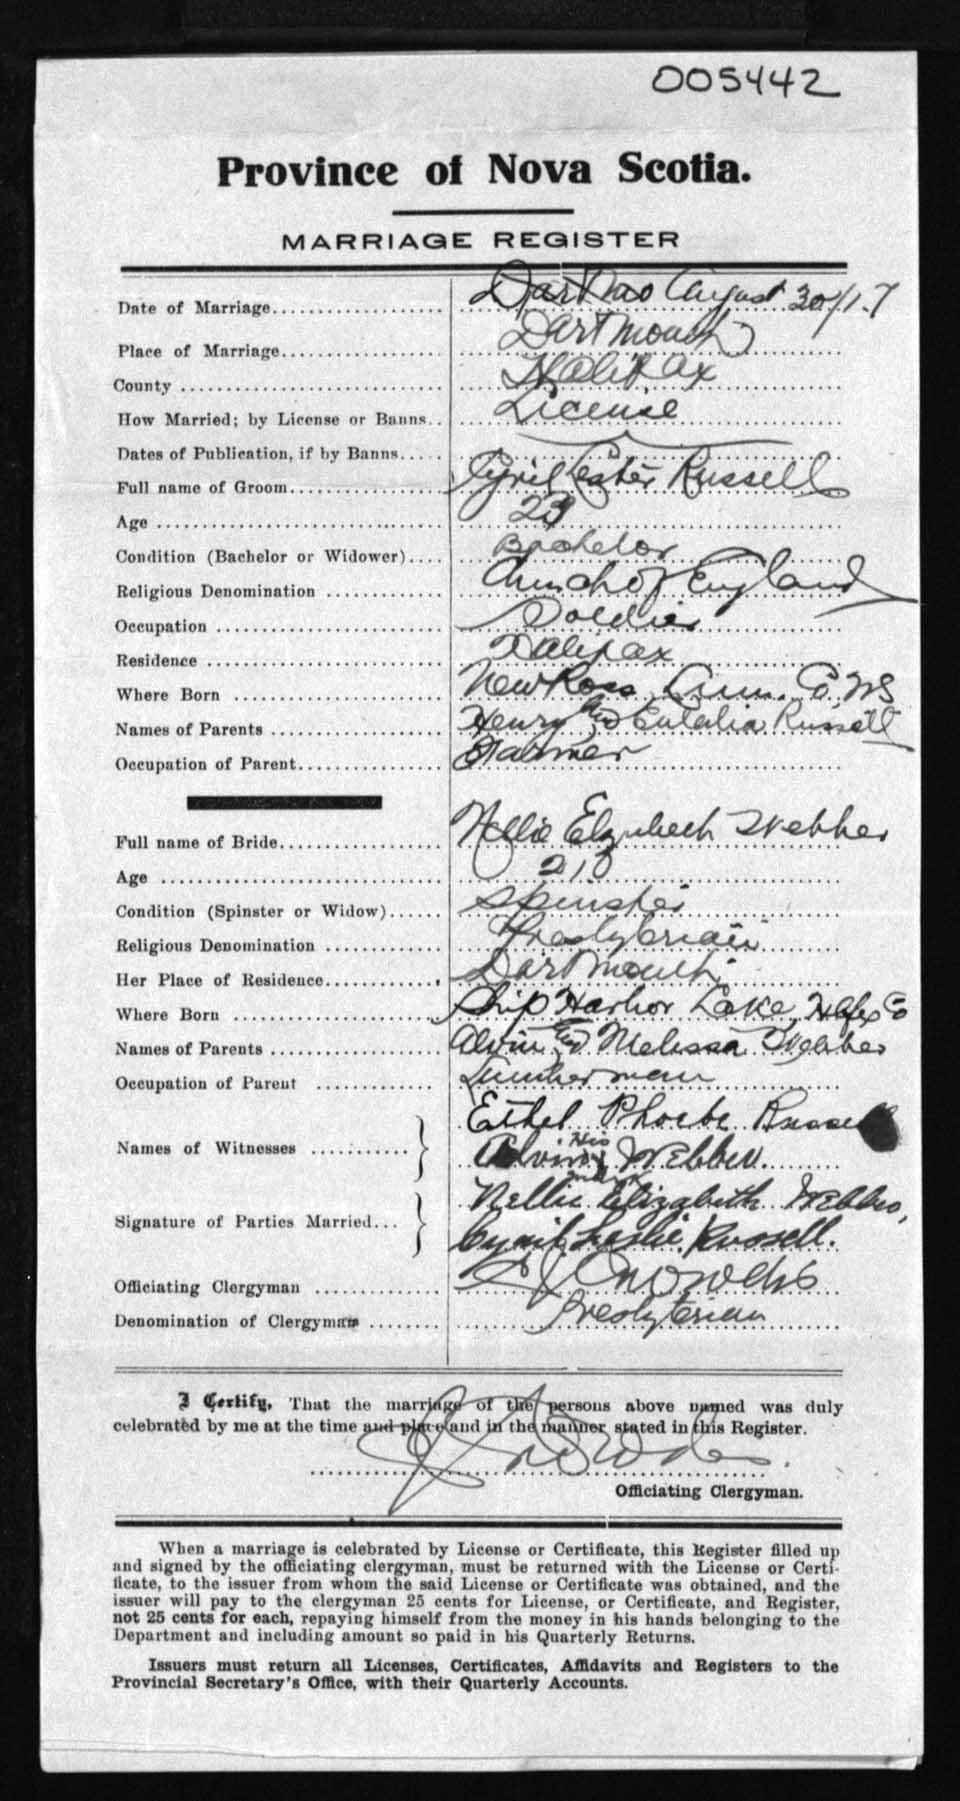 005442
Province of Nova Scotia.
MARRIAGE REGISTER
Date of Marriage August 30/17
Place of Marriage Dartmouth
County Halifax
How Married; by License or Banns License
Dates of Publication, if by Banns
Full name of Groom Cyril Russell
Age 23
Condition (Bachelor or Widower) Bachelor
Religious Denomination Church of England
Occupation Soldier
Residence Halifax
Where Born New Ross Lun. Co. NS
Names of Parents Henry and Eulalia Russell
Occupation of Parent Farmer
Full name of Bride Nellie Elizabeth Webber
Age
Condition (Spinster or Widow) Spinster
Religious Denomination Presbyterian
Her Place of Residence Dartmouth
Where Born Ship Harbor Lake, Hlfx Co
Names of Parents Alvin and Melissa Webber
Occupation of Parent Lumberman
Names of Witnesses Ethel Phoebe Russell
Alvin His X mark Webber.
Signature of Parties Married Nellie Elizabeth Webber,
Cyril Leslie Russell.
Officiating Clergyman
Denomination of Clergyman Presbyterian
I Certify, That the marriage of the persons above named was duly
celebrated by me at the time and place and in the manner stated in this Register.
Officiating Clergyman.
When a marriage is celebrated by License or Certificate, this Register filled up
and signed by the officiating clergyman, must be returned with the License or Certi-
ficate, to the issuer from whom the said License or Certificate was obtained, and the
issuer will pay to the clergyman 25 cents for License, or Certificate, and Register,
not 25 cents for each, repaying himself from the money in his hands belonging to the
Department and including amount so paid in his Quarterly Returns.
Issuers must return all Licenses, Certificates, Affidavits and Registers to the
Provincial Secretary's Office, with their Quarterly Accounts.